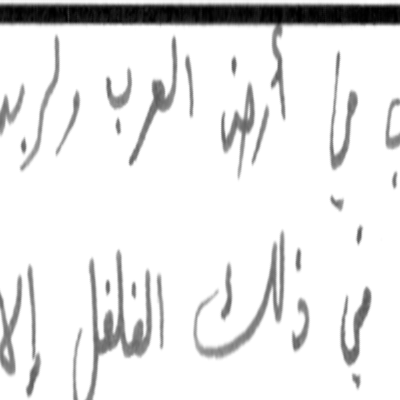 في أرض العرب ولر
في ذلك الفلفل إلا